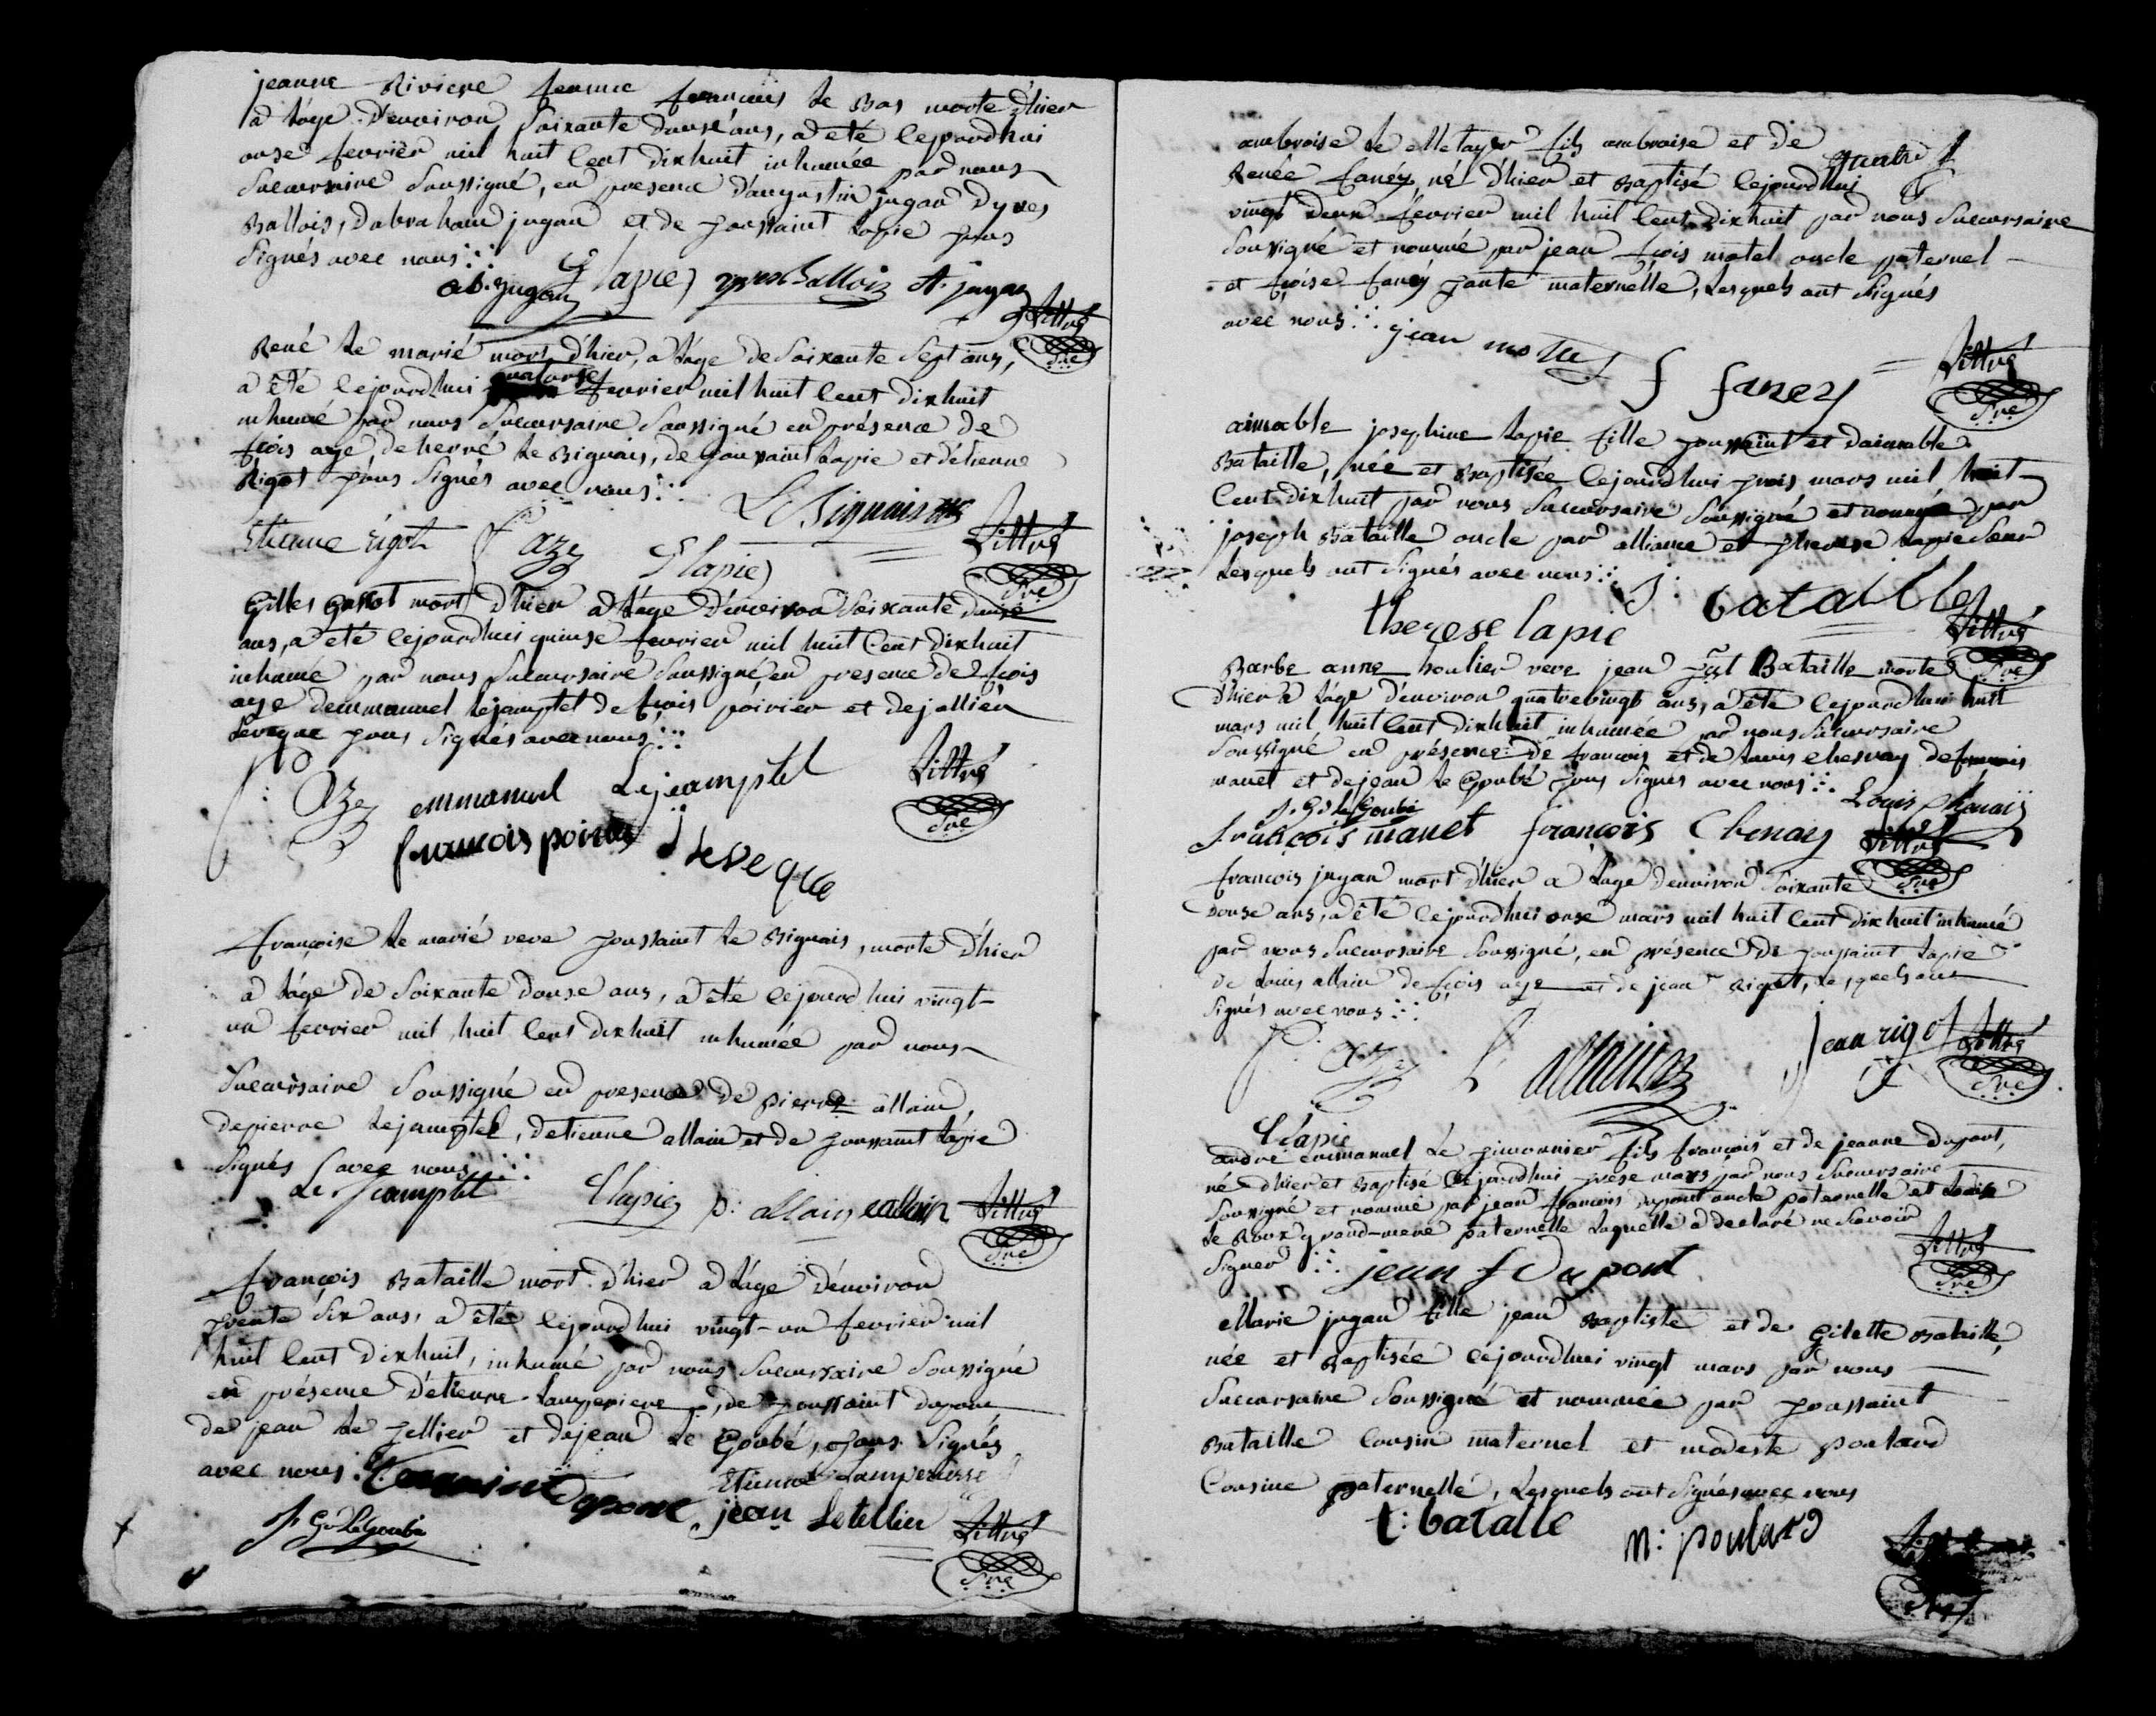 jeanne Riviere femme francois le Bas morte d'hier
a láge d'environ soixante douse ans, a eté cejourdhui
onse fevrier mil huit cent dixhuit inhumée par nous
succursaire soussigné, en presence d'augustin jugan d'yves
Ballois, dabraham jugan et de toussaint lapie tous
signés avec nous
ab. jugan T lapie yves Ballois A. jugan
Littré
Sre
René le marié mort d'hier, a láge de soixante sept ans,
a été cejourdhui quatorse fevrier mil huit cent dixhuit
inhumé par nous succursaire soussigné en présence de
fçois azé, de hervé le Bignais, de toussaint lapie et d'étienne
Rigot tous signés avec nous
Le Bignais
Etienne rigot f azé T lapie Littré
Sre
Gilles Gassot mort d'hier a láge d'environ soixante douse
ans, a été cejourdhui quinse fevrier mil huit cent dixhuit
inhumé par nous succursaire soussigné en presence de fçois
aze demmanuel lejamptel de fçois poirier et de jullien
leveque tous signés avec nous
f: Aze emmanuel Lejamptel Littré
Sre
francois poirier J leveque
françoise le marié veve toussaint le Bignais, morte d'hier
a lágé de soixante douse ans, a été cejourdhui vingt-
un fevrier mil huit cent dixhuit inhumée par nous
succursaire soussigné en presence de pierre allain
de pierre lejamptel, detienne allain et de toussaint lapie
signés avec nous
Le Jamptel T lapie p: allain e allain Littré
Sre
françois Bataille mort d'hier a láge d'environ
trente six ans, a été cejourdhui vingt-un fevrier mil
huit cent dixhuit, inhumé par nous succursaire soussigné
en présence d'etienne lamperiere, de toussaint dupont
de jean le tellier et dejean le Goubé, tous signés
avec nous
Toussaint Dupont Etienne Lamperiere
jean Letellier
J Gd LeGoubé Littré
Sre
ambroise le Metayer fils ambroise et de
Renée faney né d'hier et Baptisé cejourdhui quatre
vingt deux fevrier mil huit cent dixhuit par nous succursaire
soussigné et nommé par jean fçois motel oncle paternel
et fçoise faney tante maternelle, lesquels ont signés
avec nous
jean motte f faney Littré
Sre
aimable josephine lapie fille toussaint et daimable
Bataille, née et Baptisée cejourdhui trois mars mil huit
cent dixhuit par nous succursaire soussigné et nommée par
joseph Bataille oncle par alliance et therese lapie soeur
lesquels ont signés avec nous
J: Bataille
therese lapie Littré
Sre
Barbe anne houlier veve jean Bataille morte
d'hier a láge d'environ quatrevingt ans, a été cejourdhui huit
mars mil huit cent dixhuit inhumée par nous succursaire
soussigné en présence de francois et de louis chesnay de francois
manet et dejean le Goubé tous signés avec nous
J. Gd le Goubé Louis Chenaij
François manet francois Chenay Littré
Sre
francois jugan mort d'hier a láge d'environ soixante
douse ans, a été cejourdhui onse mars mil huit cent dixhuit inhumé
par nous succursaire soussigné, en présence de toussaint lapie
de louis allain de fçois aze et de jean Rigot, lesquels ont
signés avec nous
f: azé L allain jean rigot Littré
Sre
T lapie
andré emmanuel le timonnier fils françois et de jeanne dupont,
né d'hier et Baptisé cejourdhui trese mars par nous succursaire
soussigné et nommé par jean francois dupont oncle paternelle et louise
le Roux grand-mere paternelle laquelle a declaré ne scavoir
signer
jean f Dupont Littré
Sre
Marie jugan fille jean Baptiste et de Gilette Bataille,
née et Baptisée cejourdhui vingt mars par nous
succursaire soussigné et nommée par toussaint
Bataille cousin maternel et modeste poulard
cousine paternelle, lesquels ont signés avec nous
t: bataille m: poulard
Sre